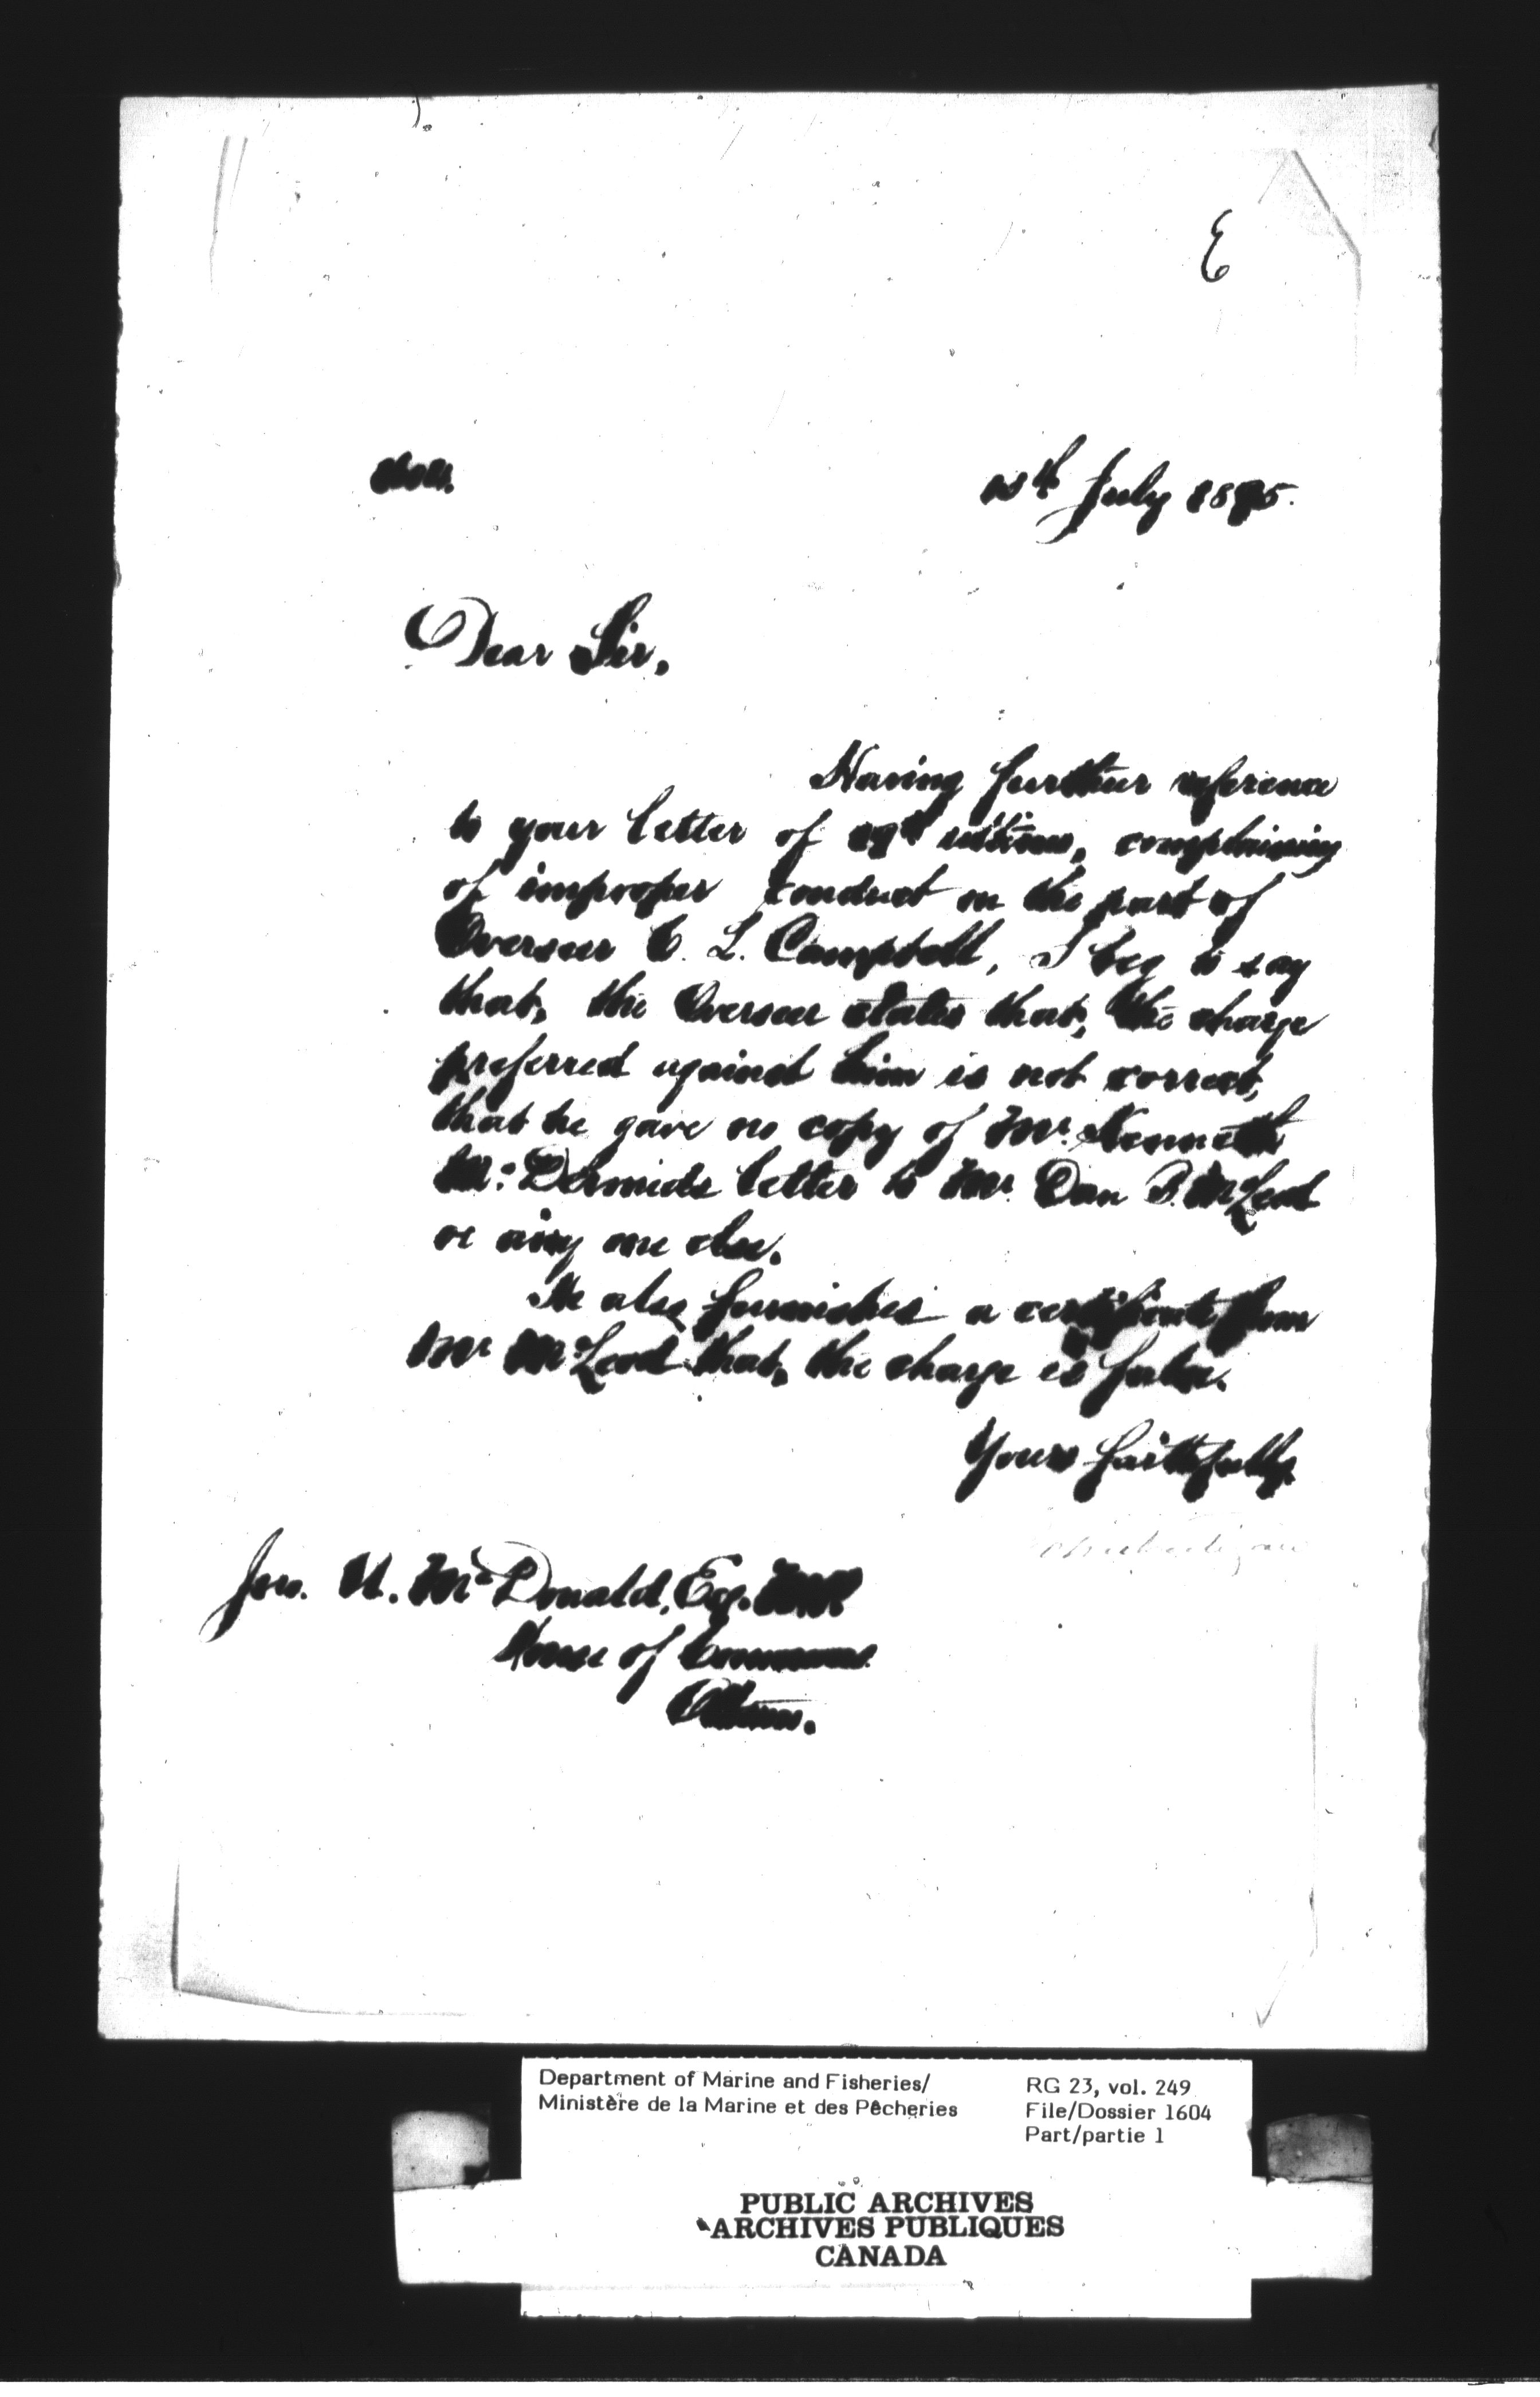 E
July 1895.
Dear Sir,
Having further reference
to your letter of ultimo, complaining
of improper conduct on the part of
Overseer C. L. Campbell, I beg to say
that, the Overseer states that, the charge
preferred against him is not correct,
that he gave no copy of Mr. Kenneth
Mc: Dermids letter to Mr. Dan McLeod
or any one else.
He also furnishes a certificate from
Mr McLeod that, the charge is false.
Yours faithfully,
McDonald, Esq. M.P.
House of Commons.
Ottawa.
Department of Marine and Fisheries/
Ministère de la Marine et des Pêcheries
RG 23, vol. 249
File/Dossier 1604
Part/partie 1
PUBLIC ARCHIVES
ARCHIVES PUBLIQUES
CANADA